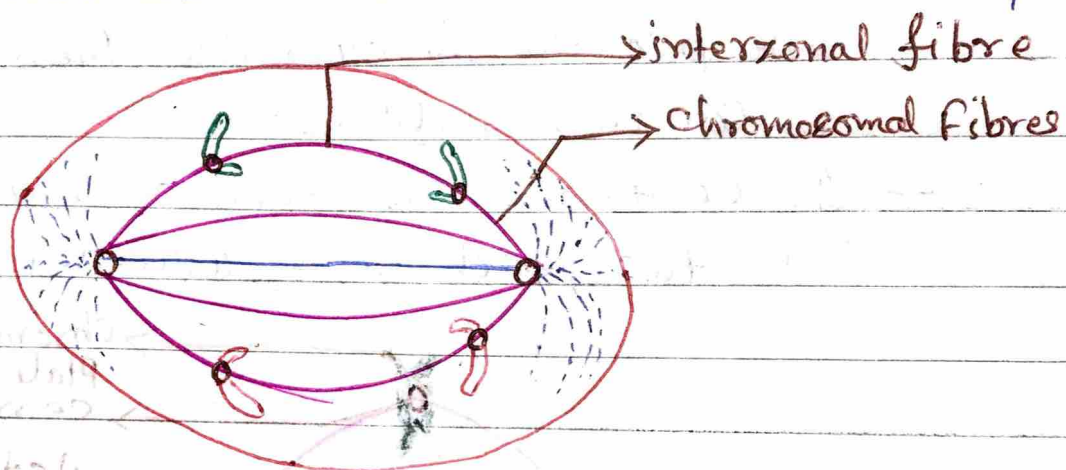 interzonal fibre
Chromosomal Fibres